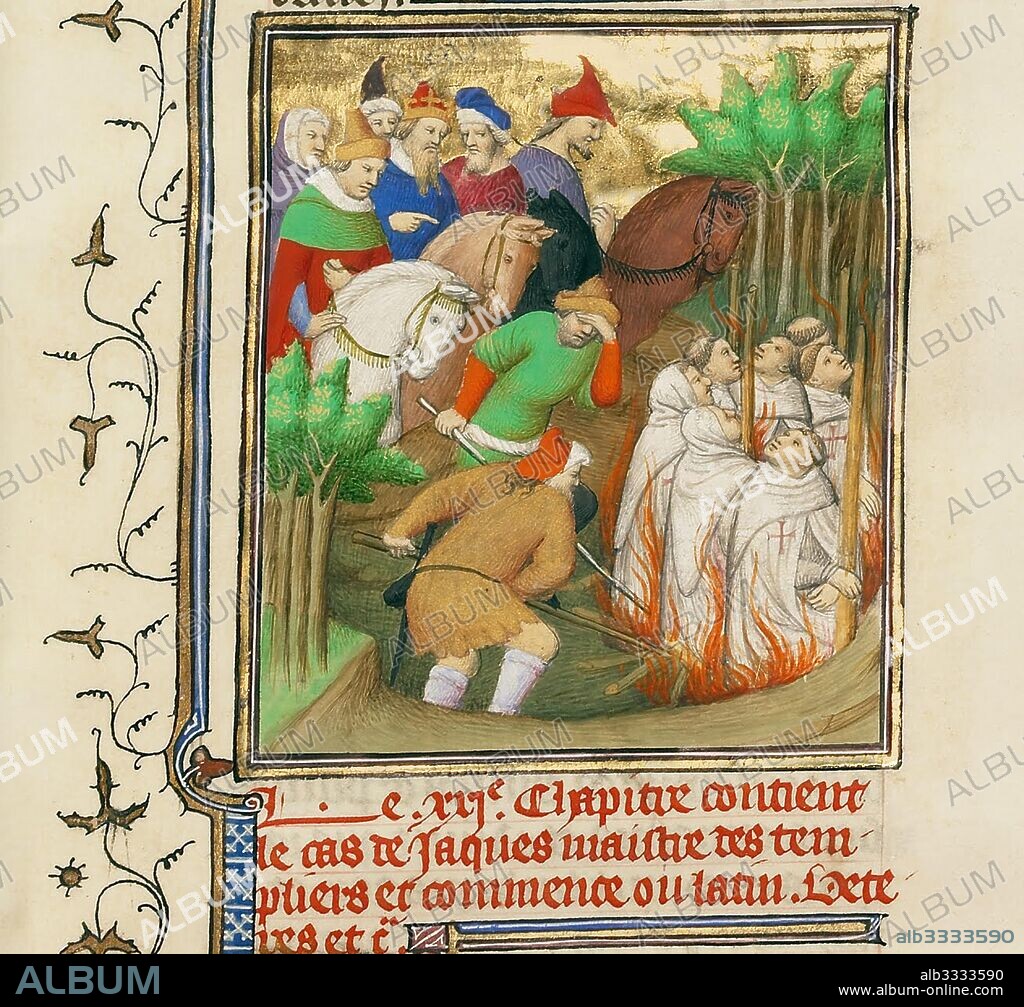 e. xxie. Chapitre contient
le cas de Jaques maistre des tem-
pliers et commence ou latin. Vete
res et c.
alb3333590
ALBUM
alb3333590
www.album-online.com